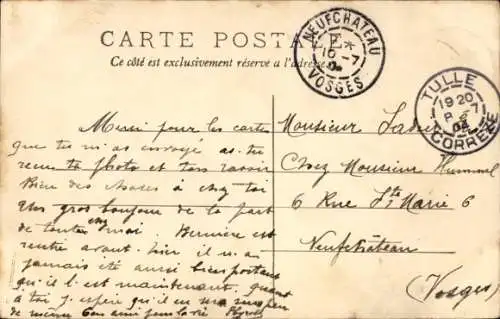 CARTE POSTA
Ce côté est exclusivement réservé à l'adresse
NEUFCHATEAU
E *
10 -7
VOSGES
TULLE
19 20
-7
CORREZE
Merci pour les cartes
que tu m'as envoyé as-tu
reçu ta photo et ton
Bien des choses à chez toi
Un gros bonjour de la part
de toutes chez moi.
rentré avant hier il n'a
jamais été aussi bien portant
qu'il l'est maintenant. quant
à toi j'espère qu'il en
de même ton ami pour la vie
Monsieur
Chez Monsieur Hummel
6 Rue Ste Marie 6
Neufchâteau
(Vosges)